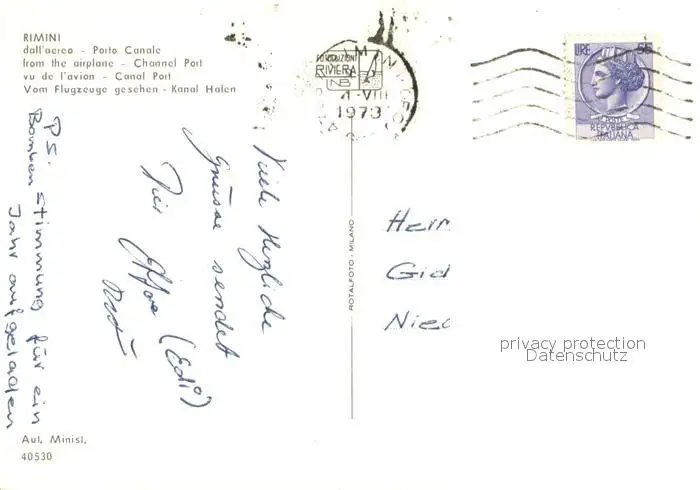 RIMINI
dall'aereo - Porto Canale
from the airplane - Channel Port
vu de l'avion - Canal Port
Vom Flugzeuge gesehen - Kanal Hafen
Viele Herzliche
Grüsse sendet
Dir
(Edi)
P.S.
Bomben Stimmung für ein
Jahr aufgeladen
Aut. Minist.
40530
ROTALFOTO - MILANO
RIMINI
RIVIERA
NB
VIII
1973
LIRE 55
REPVBBLICA
ITALIANA
Herr
Gid
Nied
privacy protection
Datenschutz